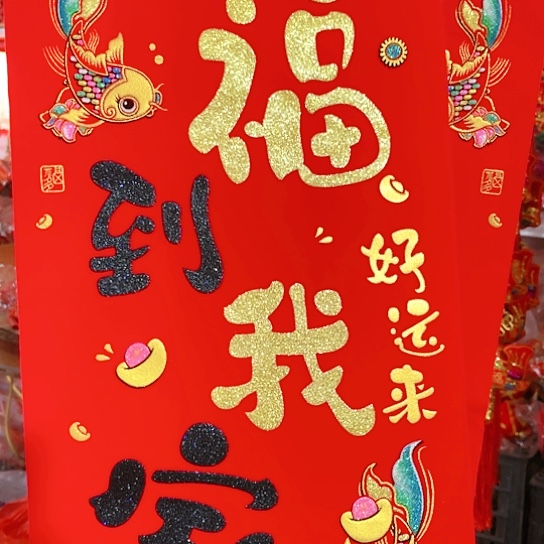 福到我家
好运来